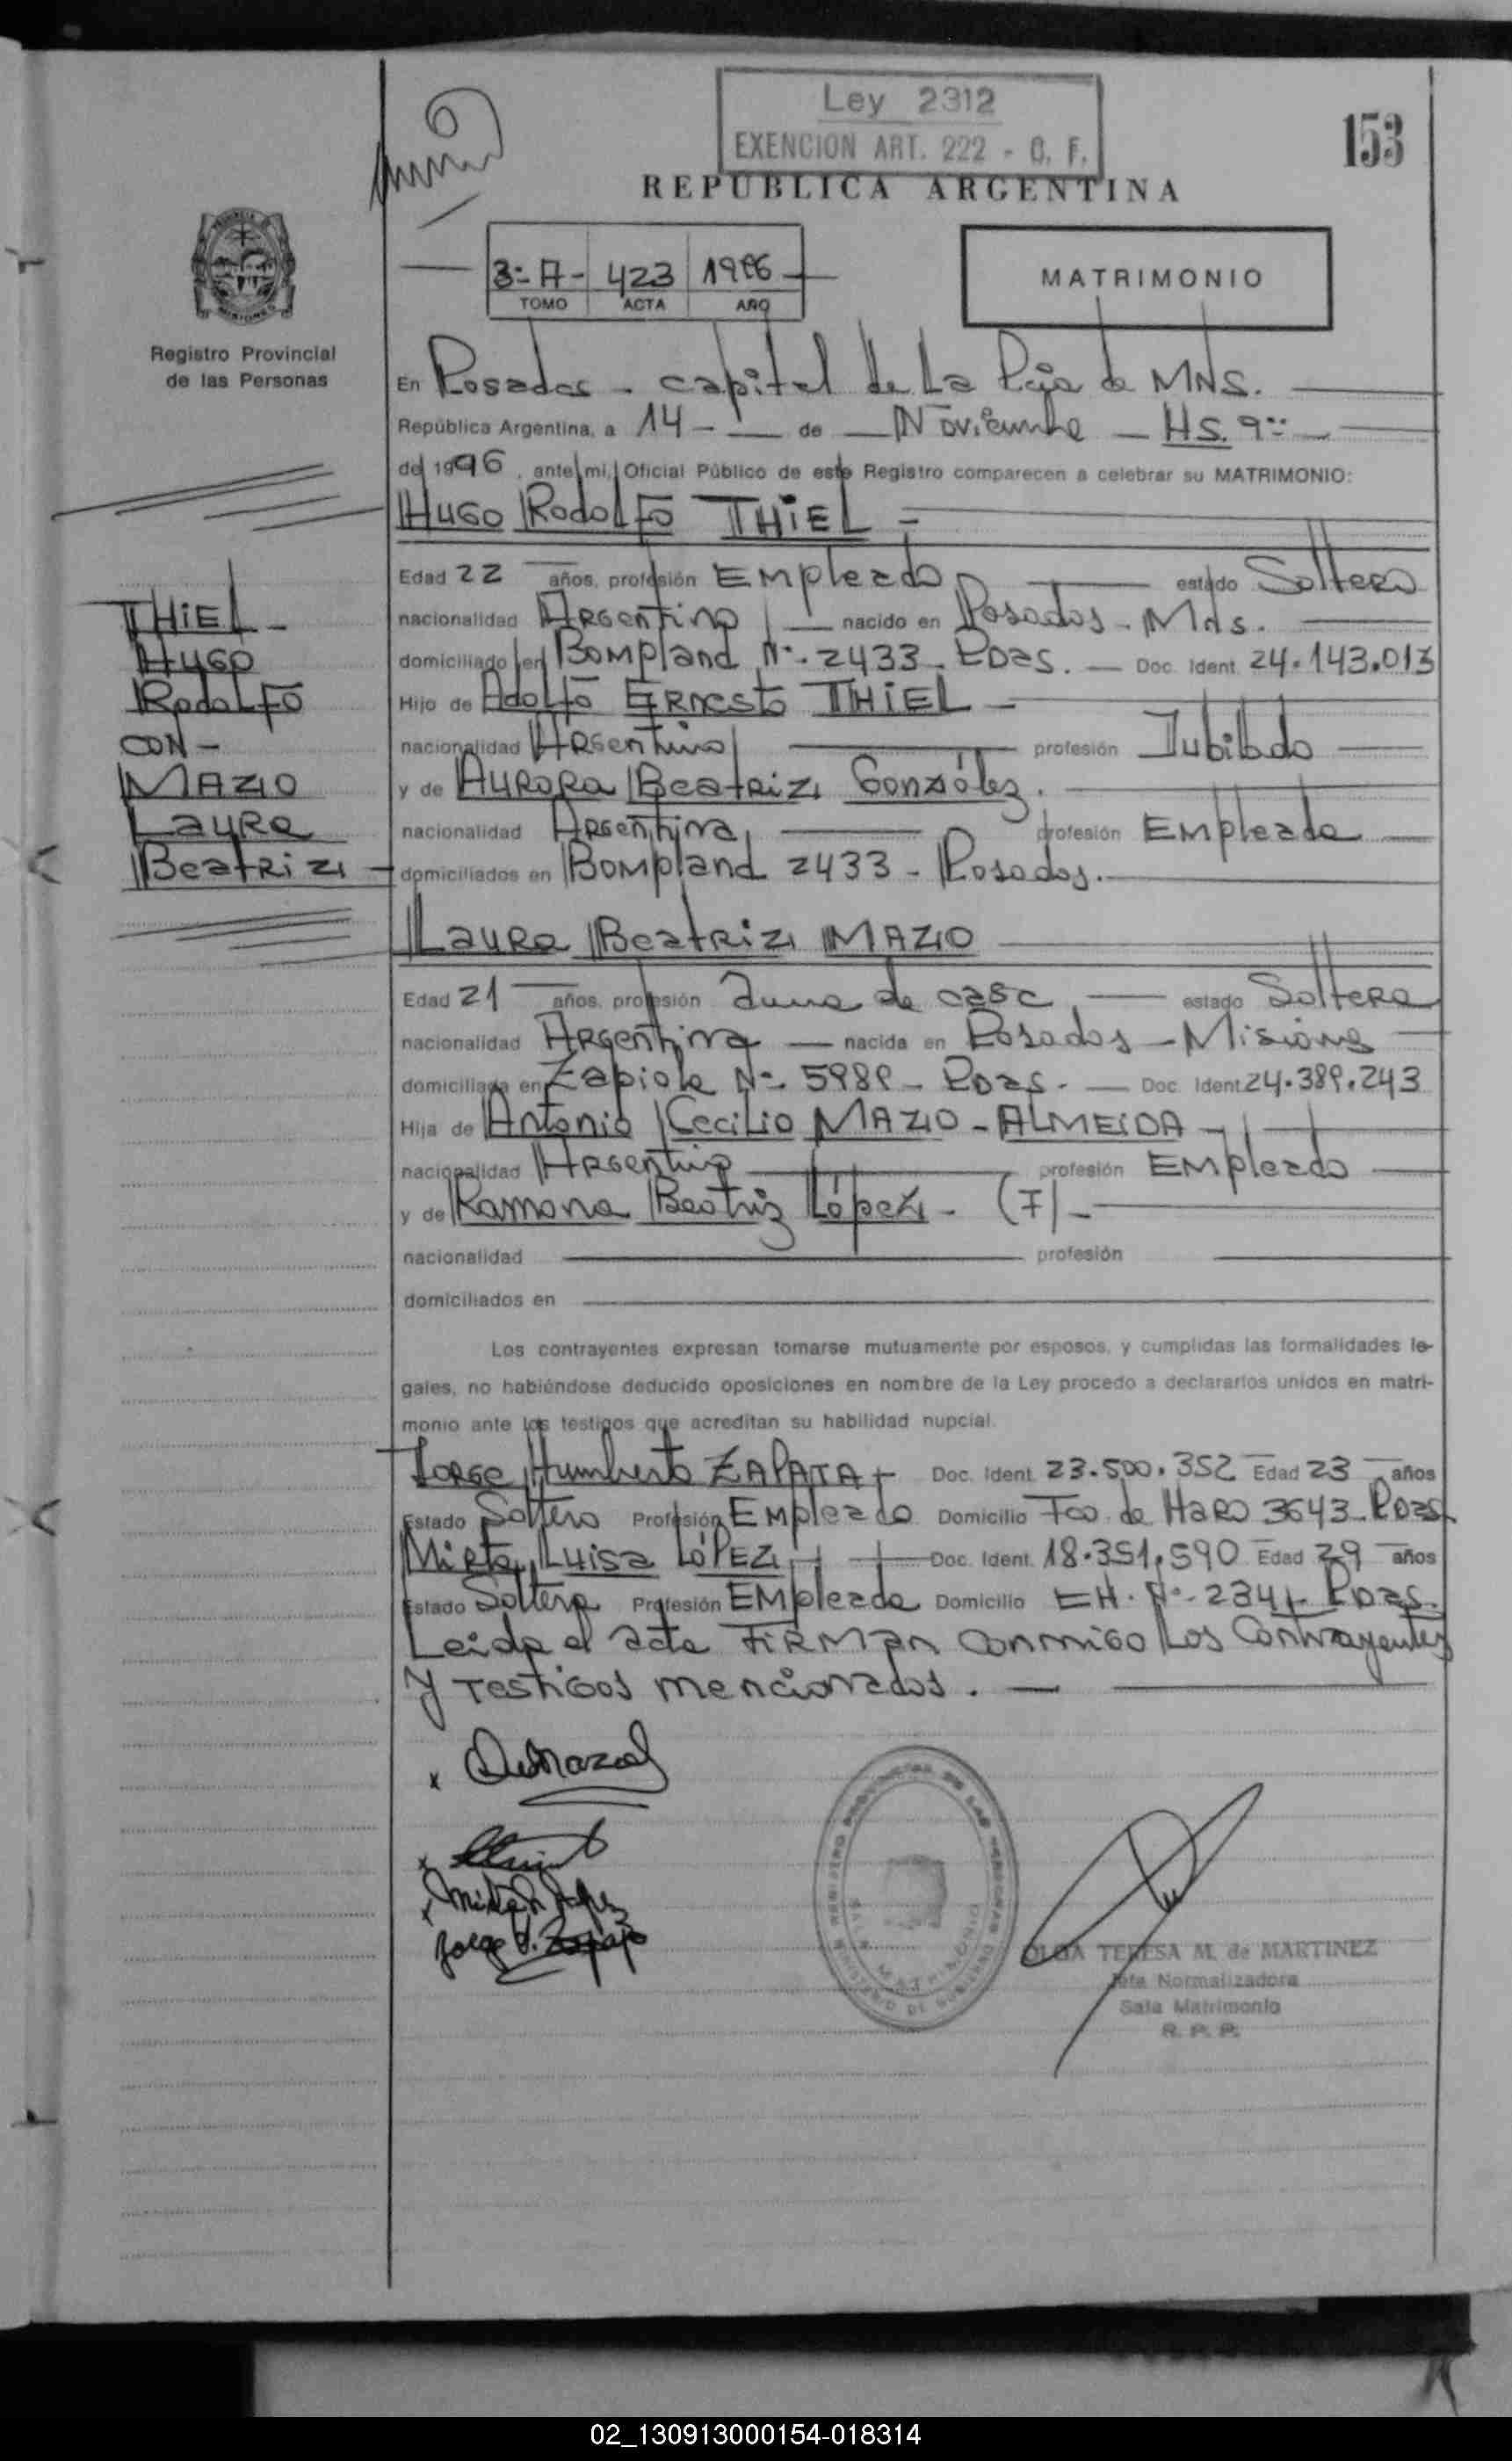 Ley 2312
EXENCION ART. 222 - C. F.
153
REPUBLICA ARGENTINA
3º A - 423 1996
TOMO ACTA AÑO
MATRIMONIO
Registro Provincial
de las Personas
En Posadas - capital de La Pcia de MNS.
República Argentina, a 14 - de Noviembre - HS. 9
del 1996, ante mi, Oficial Público de este Registro comparecen a celebrar su MATRIMONIO:
Hugo Rodolfo THIEL
Edad 22 años, profesión Empleado estado Soltero
nacionalidad Argentino nacido en Posadas - Mns.
domiciliado en Bompland Nº 2433 - Pdas. - Doc. Ident. 24.143.013
Hijo de Adolfo Ernesto THIEL -
nacionalidad Argentino profesión Jubilado
y de Aurora Beatriz González.
nacionalidad Argentina, profesión Empleada
domiciliados en Bompland 2433 - Posadas.
THIEL -
Hugo
Rodolfo
CON -
MAZIO
Laura
Beatriz -
Laura Beatriz MAZIO
Edad 21 años, profesión Ama de casa estado Soltera
nacionalidad Argentina nacida en Posadas - Misiones
domiciliada en Zapiola Nº 5989 - Pdas. - Doc. Ident. 24.389.243
Hija de Antonio Cecilio MAZIO - ALMEIDA -
nacionalidad Argentino profesión Empleado
y de Ramona Beatriz López - (F) -
nacionalidad profesión
domiciliados en
Los contrayentes expresan tomarse mutuamente por esposos, y cumplidas las formalidades le-
gales, no habiéndose deducido oposiciones en nombre de la Ley procedo a declararlos unidos en matri-
monio ante los testigos que acreditan su habilidad nupcial.
Jorge Humberto ZAPATA Doc. Ident. 23.500.352 Edad 23 años
Estado Soltero Profesión Empleado Domicilio Fco. de Haro 3643 - Pdas
Mirta Luisa LÓPEZ Doc. Ident. 18.351.590 Edad 29 años
Estado Soltera Profesión Empleada Domicilio CH. Nº 234 - Pdas.
Leida el acta firman conmigo los Contrayentes
y testigos mencionados. -
Mirta L. Lopez
Jorge H. Zapata
REGISTRO PROVINCIAL DE LAS PERSONAS
MINISTERIO DE GOBIERNO
SALA MATRIMONIO
OLGA TERESA M. de MARTINEZ
Jefa Normalizadora
Sala Matrimonio
R. P. P.
02_130913000154-018314